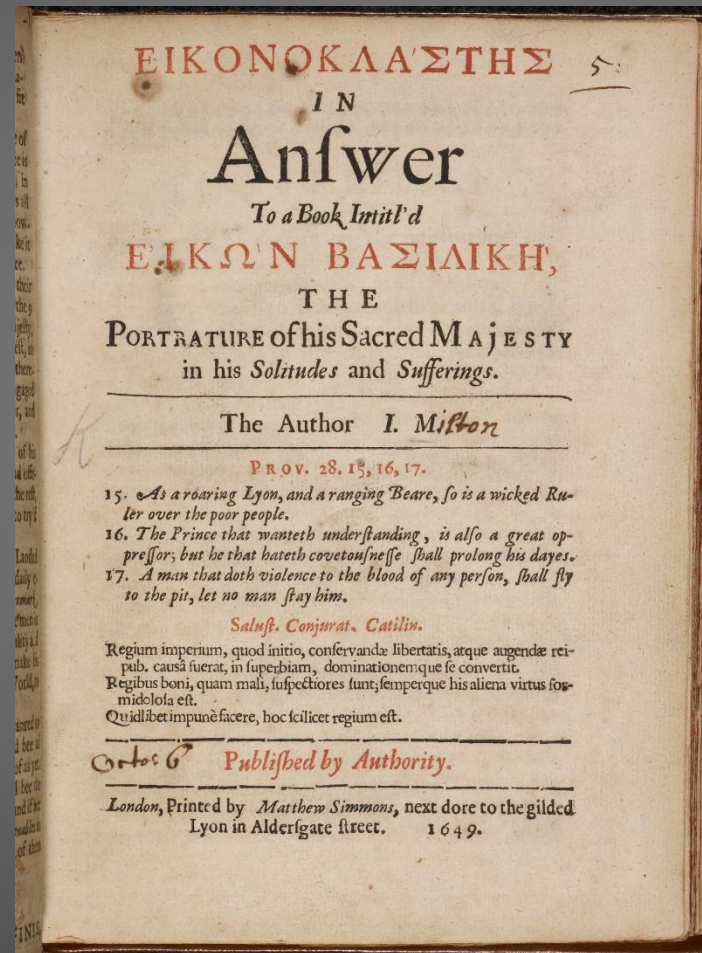 ΕΙΚΟΝΟΚΛΑ'ΣΤΗΣ
5
IN
Anſwer
To a Book Intitl'd
Ε'ΙΚΩ'Ν ΒΑΣΙΛΙΚΗ',
THE
PORTRATURE of his Sacred MAJESTY
in his Solitudes and Sufferings.
The Author I. Milton
K
PROV. 28. 15, 16, 17.
15. As a roaring Lyon, and a ranging Beare, ſo is a wicked Ru-
ler over the poor people.
16. The Prince that wanteth underſtanding, is alſo a great op-
preſſor; but he that hateth covetouſneſſe ſhall prolong his dayes.
17. A man that doth violence to the blood of any perſon, ſhall fly
to the pit, let no man ſtay him.
Saluſt. Conjurat. Catilin.
Regium imperium, quod initio, conſervandæ libertatis, atque augendæ rei-
pub. cauſâ fuerat, in ſuperbiam, dominationemque ſe convertit.
Regibus boni, quam mali, ſuſpectiores ſunt; ſemperque his aliena virtus for-
midoloſa eſt.
Quidlibet impunè facere, hoc ſcilicet regium eſt.
Octob 6 Publiſhed by Authority.
London, Printed by Matthew Simmons, next dore to the gilded
Lyon in Alderſgate ſtreet. 1649.